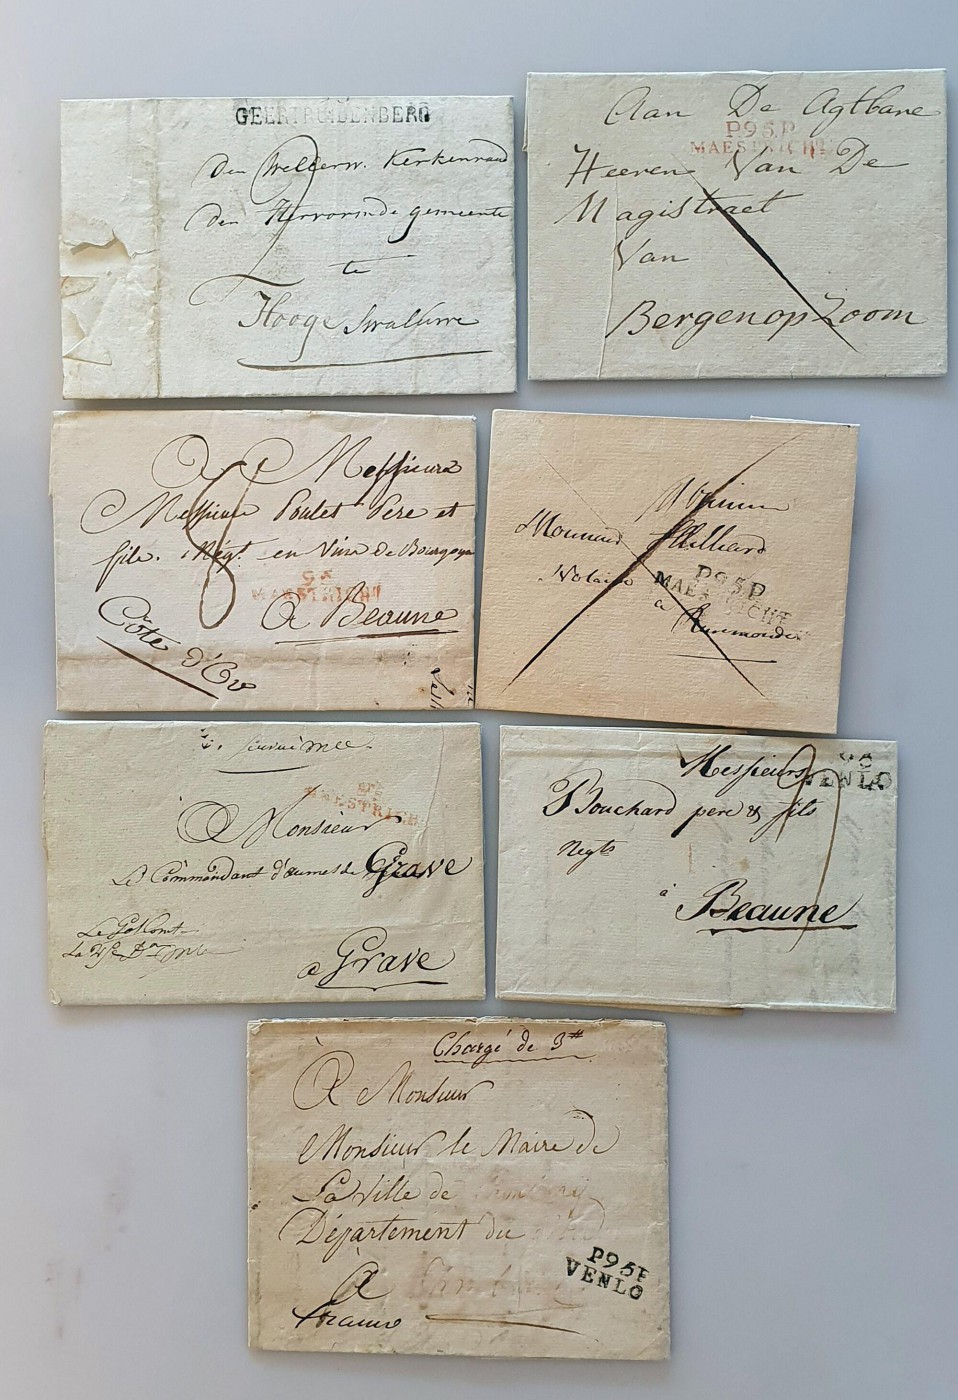 GEERTRUIDENBERG
Den Kerkenraad
Den gemeente
te
Hooge Swaluwe
Aan De Agtbare
P95P
MAESTRICHT
Heeren Van De
Magistraet
Van
Bergen op Zoom
A Messieurs
Messieurs Poulet Père et
fils. Négt. en Vins de Bourgogne
95
MAESTRICHT
A Beaune
Côte d'Or
8
Monsieur
Notaire
P95P
MAESTRICHT
à Ruremonde
95
MAESTRICHT
A Monsieur
Le Commandant d'armes de Grave
a Grave
Messieurs
95
VENLO
Bouchard pere & fils
Negts
à Beaune
Chargé de 3
À Monsieur
Monsieur le Maire de
La Ville de
Département du
P95P
VENLO
À
France